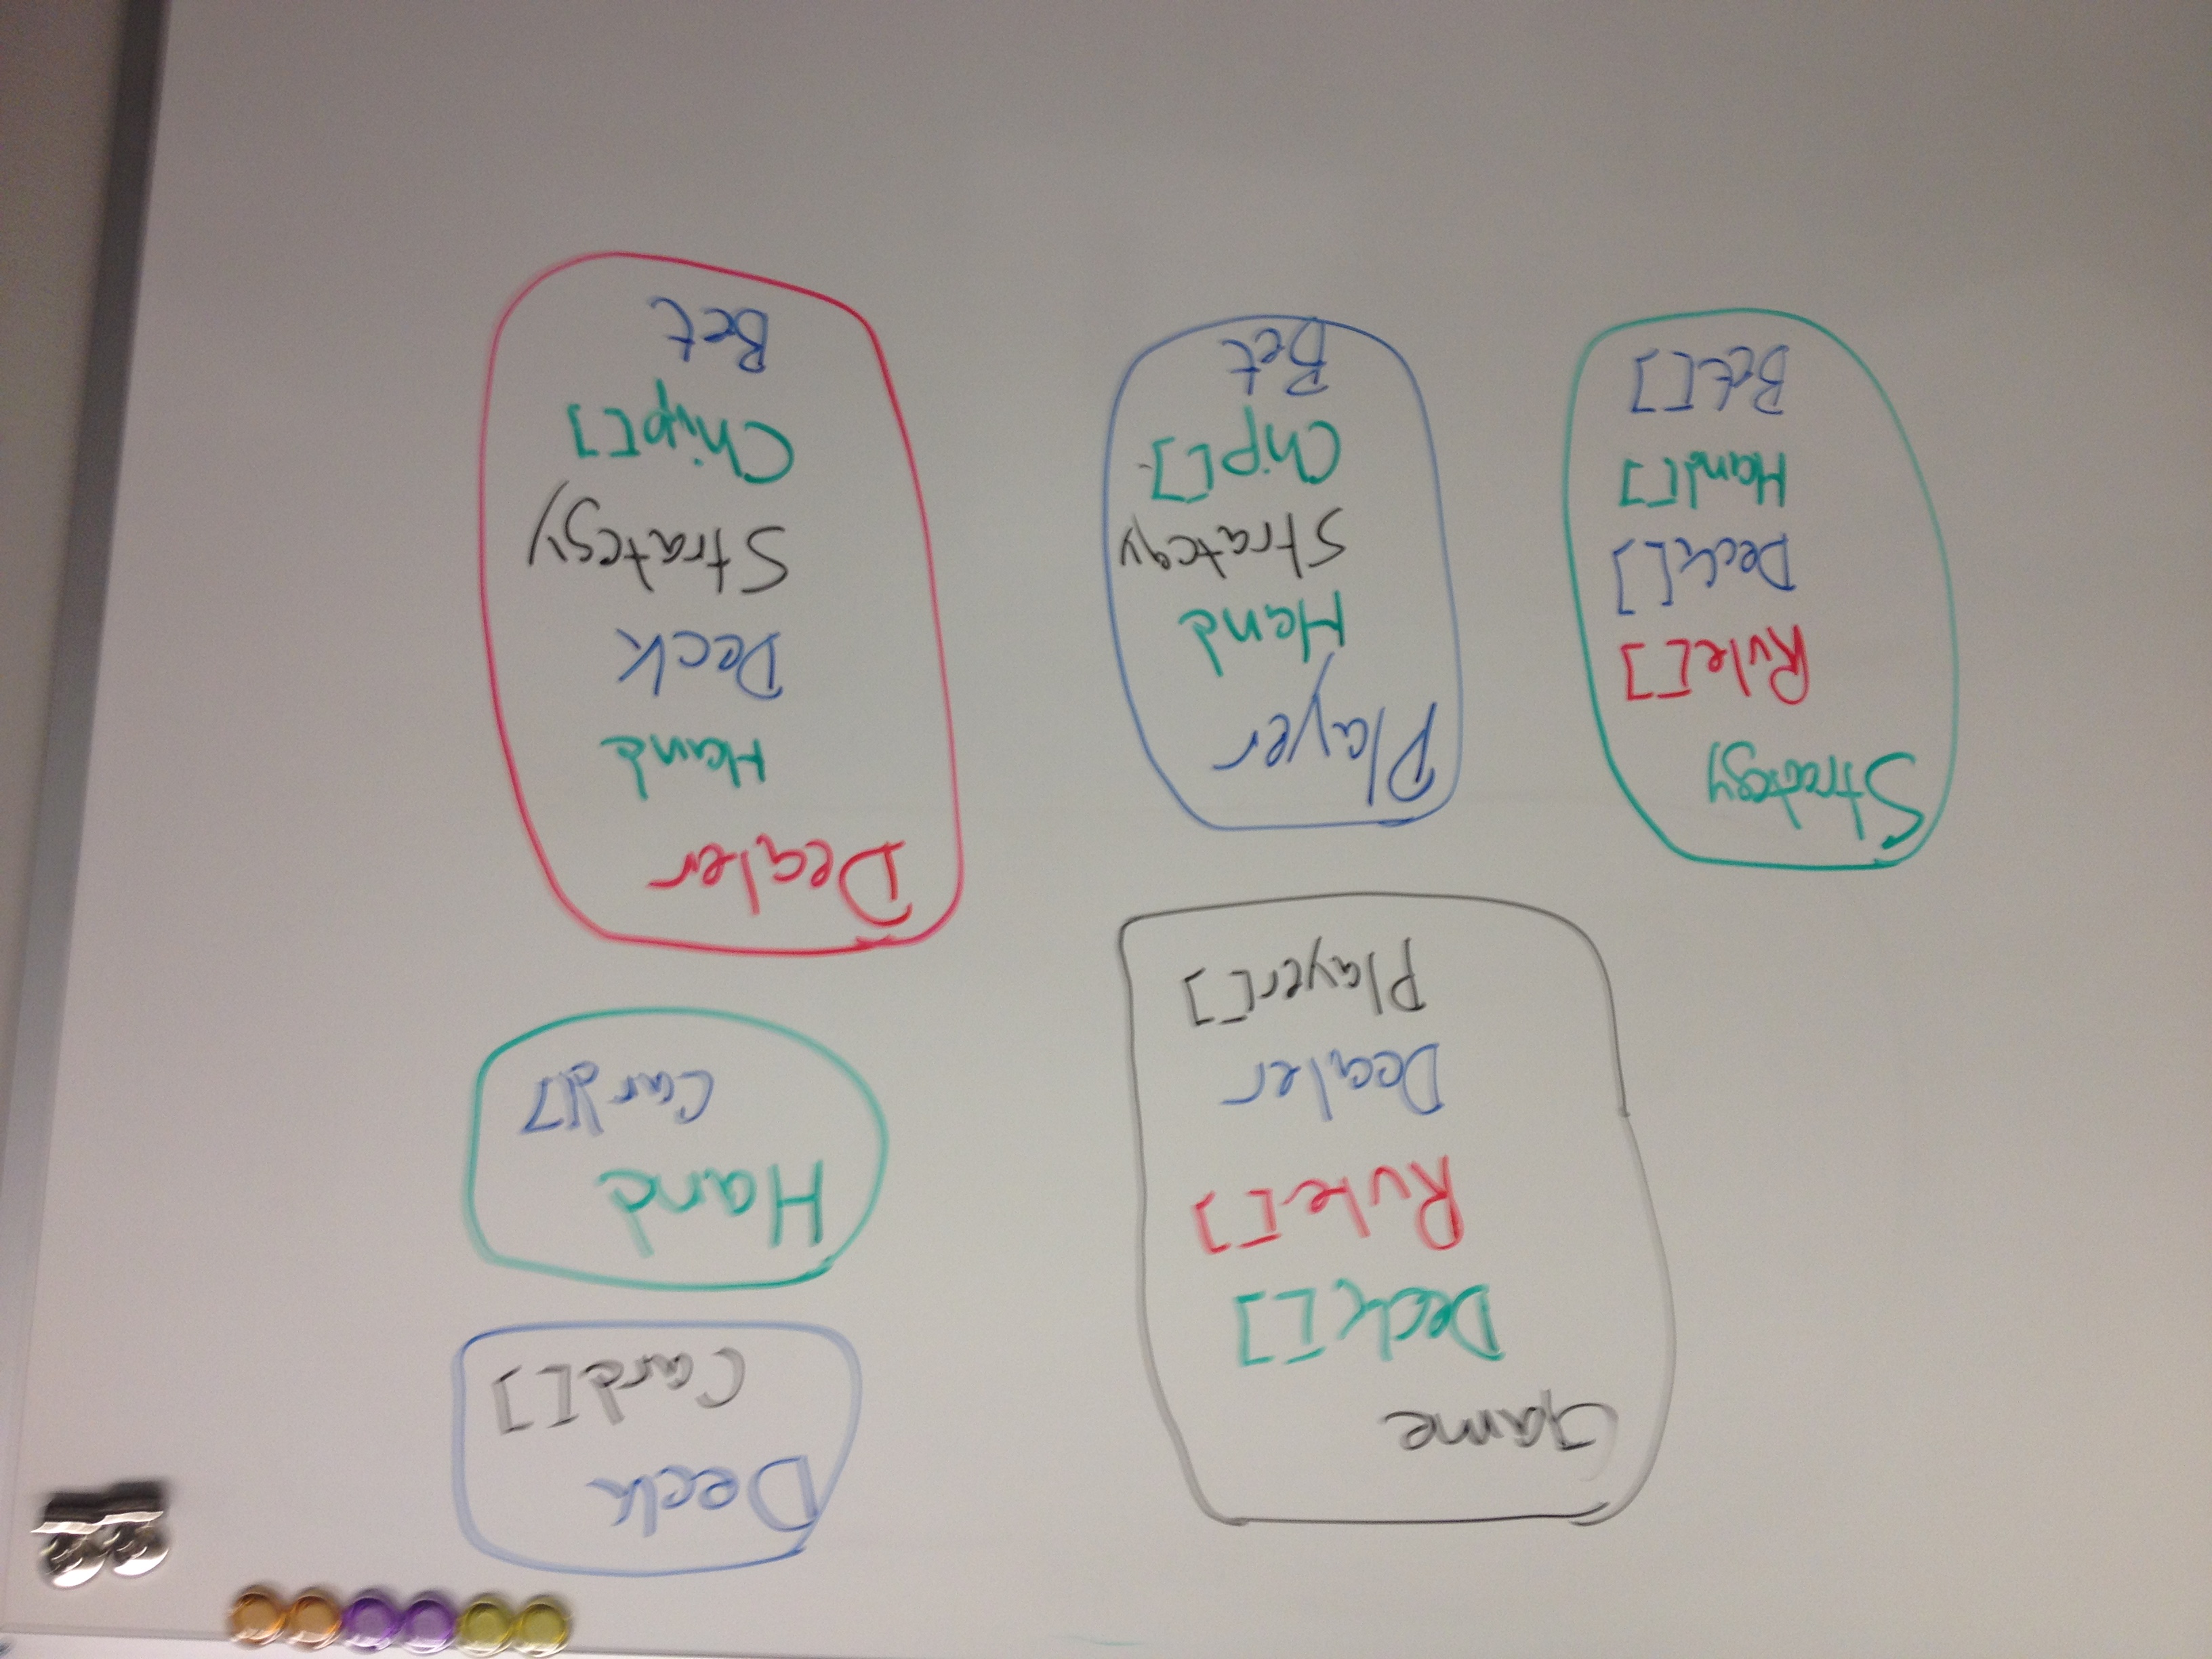 Game
Deck[]
Rule[]
Dealer
Player[]
Deck
Card[]
Hand
Card[]
Strategy
Rule[]
Deck[]
Hand[]
Bet[]
Player
Hand
Strategy
Chip[]
Bet
Dealer
Hand
Deck
Strategy
Chip[]
Bet
22